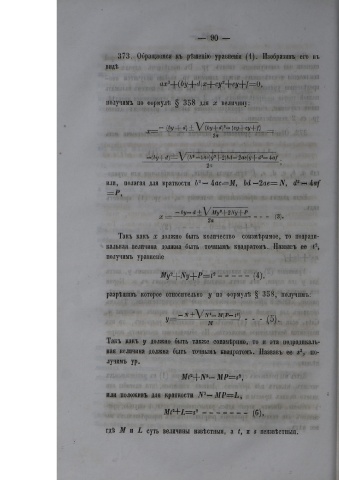 — 90 —
373. Обращаемся къ рѣшенію уравненія (1). Изобразимъ его въ
видѣ
ax²+(by+d)x+cy²+ey+f=0,
получимъ по формулѣ § 358 для x величину:
x= −(by+d)±√(by+d)²−
2a
−(by+d)±√(b²−4ac)y²+2(bd−2ae)y+d²−4af
2a
или, полагая для краткости b²−4ac=M, bd−2ae=N, d²−4af
=P,
x= −by−d±√My²+2Ny+P - - - (3).
2a
Такъ какъ x должно быть количество соизмѣримое, то подради-
кальная величина должна быть точнымъ квадратомъ. Назвавъ ее t²,
получимъ уравненіе
My²+Ny+P=t² - - - - - (4),
разрѣшивъ которое относительно y по формулѣ § 358, получимъ:
y= −N±√N²−M(P−t²) - - - (5).
M
Такъ какъ y должно быть также соизмѣримо, то и эта подрадикаль-
ная величина должна быть точнымъ квадратомъ. Назвавъ ее s², по-
лучимъ ур.
Mt²+N²−MP=s²,
или положивъ для краткости N²−MP=L,
Mt²+L=s² - - - - - - - (6),
гдѣ M и L суть величины извѣстныя, а t, и s неизвѣстныя.